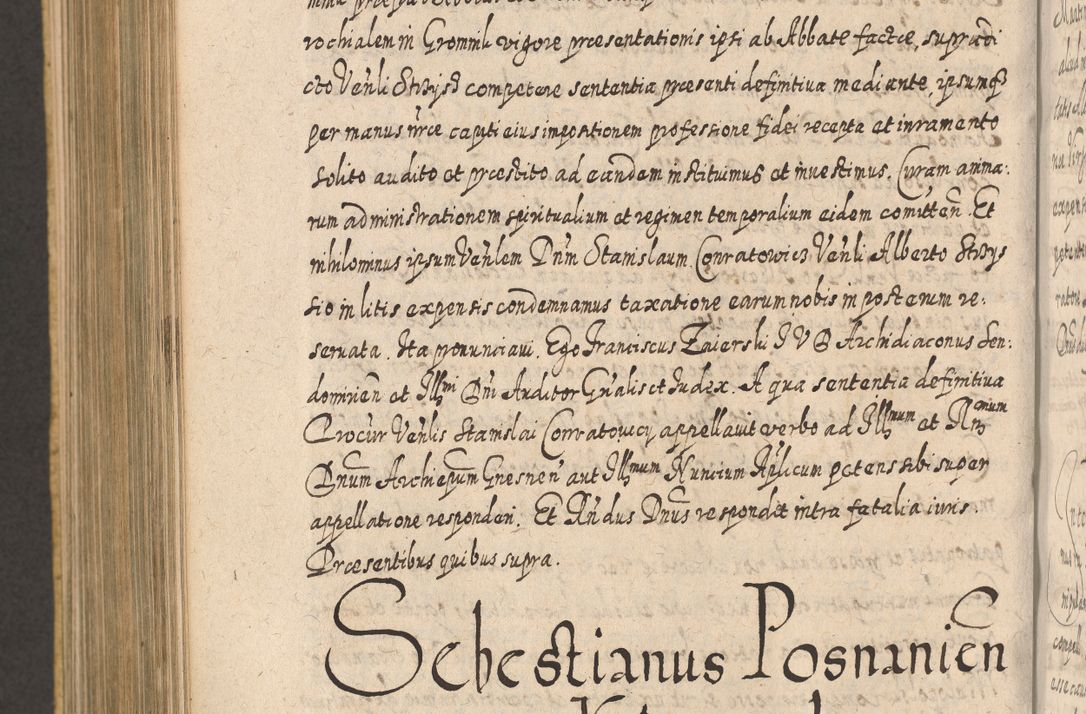 rochialem in Gromnik vigore præsentationis ipsi ab Abbate factæ, supradi
cto Venli Strzyss competere sententia præsenti definitiva mediante, ipsumq3
per manus nræ capiti eius impositionem professione fidei recepta et iuramento
solito audito et præstito ad eandem instituimus et investimus. Curam anima:
rum administrationem spiritualium et regimen temporalium eidem comitten. Et
nihilominus ipsum Venlem Dnm Stanislaum Conratowicz Venli Alberto Strzys
sio in litis expensis condemnamus taxatione earum nobis in posterum re:
servata. Ita pronunciavi. Ego Franciscus Zaierski I V D Archidiaconus Sen:
domirien et Illmi Dni Auditor Gnalis et Iudex. A qua sententia definitiva
Procur Venlis Stanislai Conratowicy appellavit verbo ad Illmum et Rmum
Dnum Archiepum Gnesnen aut Illmum Nuncium Aplicum petens sibi super
appellatione responderi. Et Rndus Dnus respondit intra fatalia iuris.
Præsentibus quibus supra.
Sebestianus Posnanien